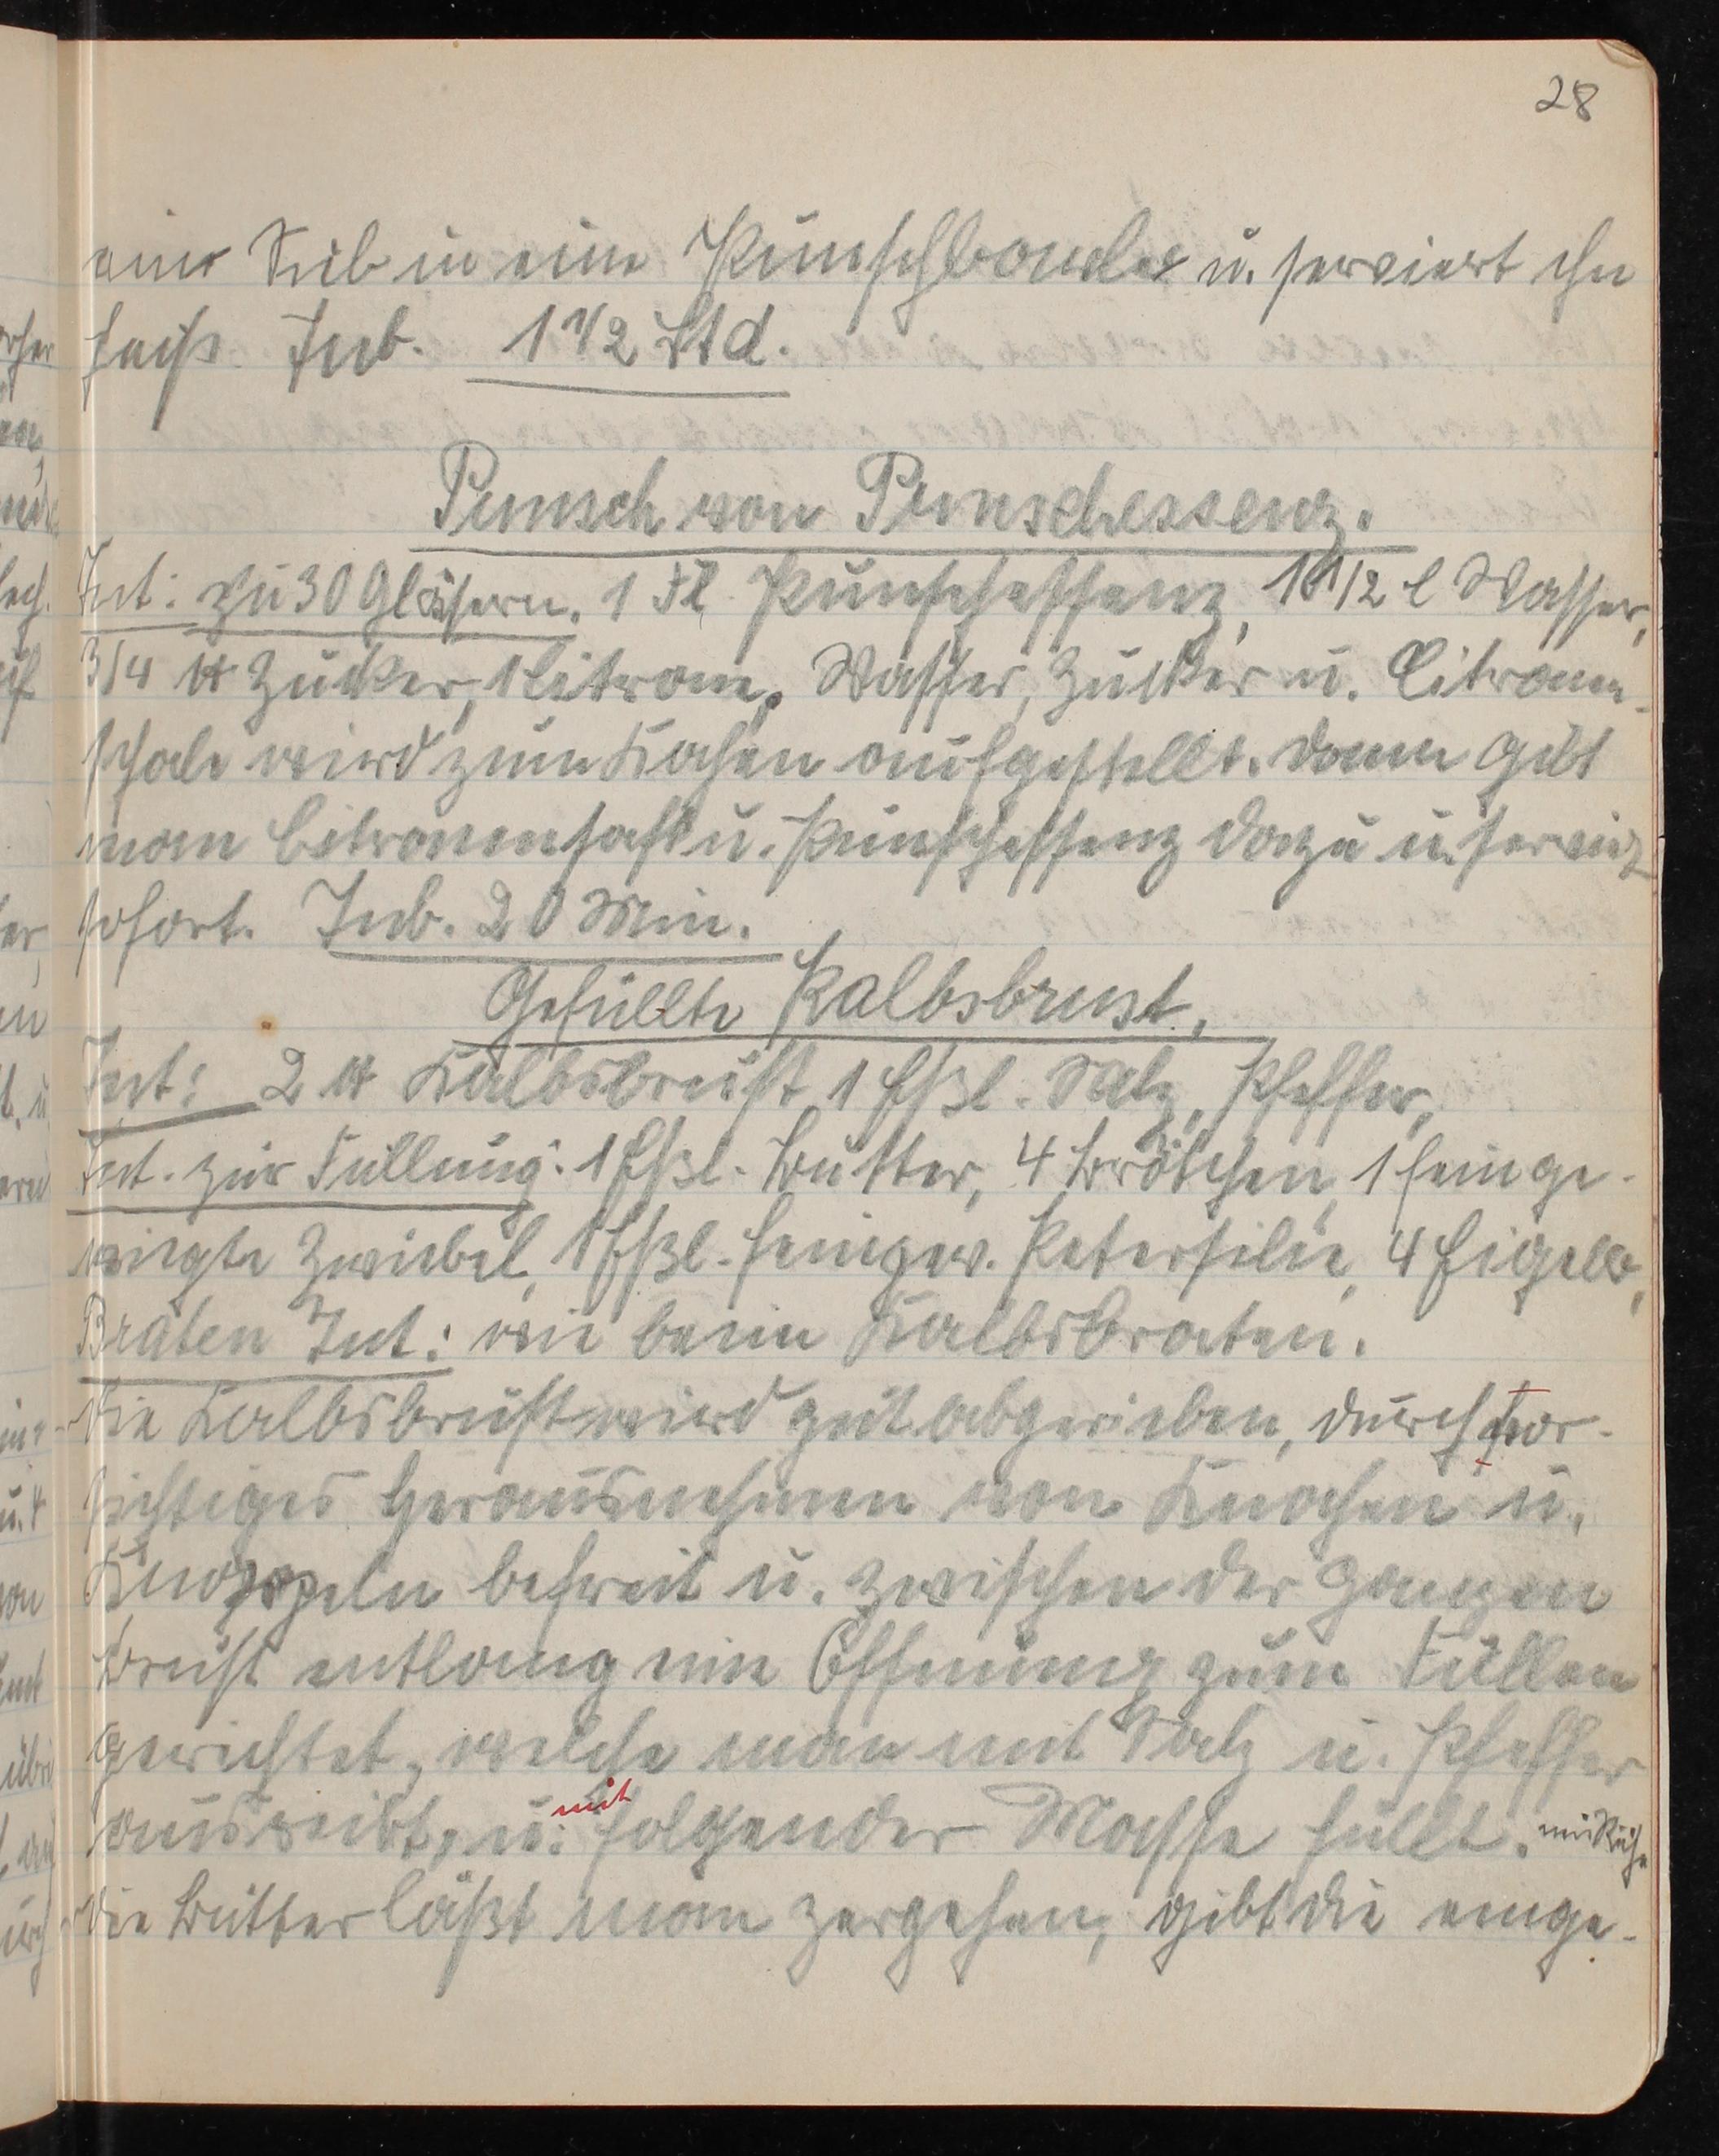 28
ein Sieb in eine Punschbowle u. serviert ihn
heiß. Zub. 1 1/2 Std.
Punsch von Punschessenz.
Zut: zu 30 Gläsern. 1 Fl. Punschessenz, 1 1/2 l Wasser,
3/4 ℔ Zucker, 1 Citrone. Wasser, Zucker u. Citronen-
schale wird zum Kochen aufgestellt. Dann gibt
man Citronensaft u. Punschessenz dazu u. serviert
sofort. Zub. 20 Min.
Gefüllte Kalbsbrust.
Zut: 2 ℔ Kalbsbrust, 1 Eßl. Salz, Pfeffer,
Zut. zur Füllung: 1 Eßl. Butter, 4 Brötchen, 1 feinge-
wiegte Zwiebel, 1 Eßl. feingew. Petersilie, 4 Eigelb,
Braten Zut: wie beim Kalbsbraten.
Die Kalbsbrust wird gut abgerieben, durch vor-
sichtiges Herausnehmen von Knochen u.
Knorpeln befreit u. zwischen der ganzen
Brust entlang eine Öffnung zum Füllen
gerichtet, welche man mit Salz u. Pfeffer
ausreibt, u. mit folgender Masse füllt.
Die Butter läßt man zergehen, gibt die einge-